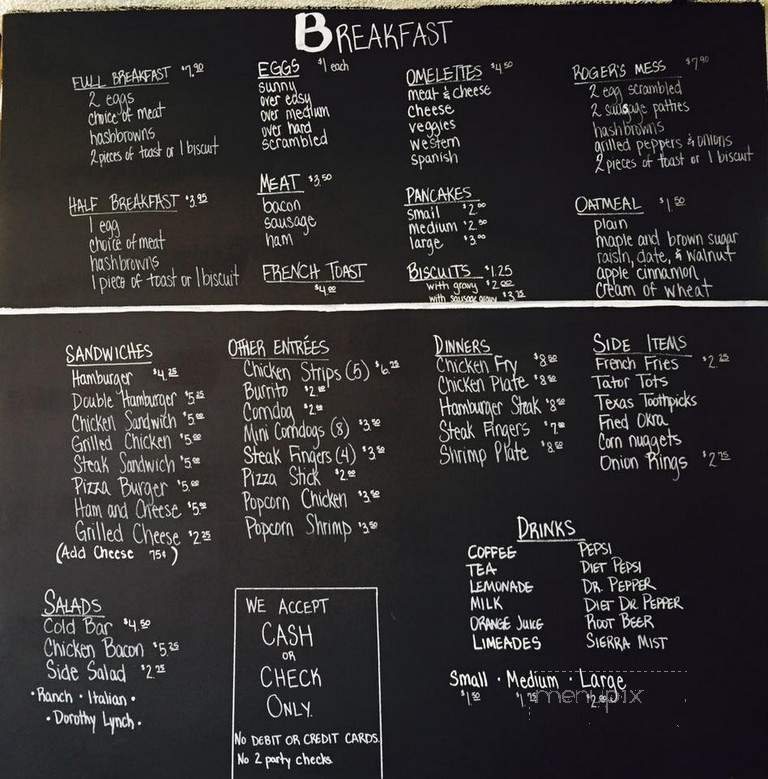 BREAKFAST
FULL BREAKFAST $7.90
2 eggs
choice of meat
hashbrowns
2 pieces of toast or 1 biscuit
HALF BREAKFAST $3.95
1 egg
choice of meat
hashbrowns
1 piece of toast or 1 biscuit
EGGS $1 each
sunny
over easy
over medium
over hard
scrambled
MEAT $3.50
bacon
sausage
ham
FRENCH TOAST
$4.00
OMELETTES $4.50
meat & cheese
cheese
veggies
western
spanish
PANCAKES
small $2.00
medium $2.50
large $3.00
BISCUITS $1.25
with gravy $2.00
with sausage gravy $3.75
ROGER'S MESS $7.90
2 egg scrambled
2 sausage patties
hashbrowns
grilled peppers & onions
2 pieces of toast or 1 biscuit
OATMEAL $1.50
plain
maple and brown sugar
raisin, date, & walnut
apple cinnamon
cream of wheat
SANDWICHES
Hamburger $4.25
Double Hamburger $5.25
Chicken Sandwich $5.00
Grilled Chicken $5.00
Steak Sandwich $5.00
Pizza Burger $5.00
Ham and Cheese $5.00
Grilled Cheese $2.25
(Add Cheese 75¢)
OTHER ENTRÉES
Chicken Strips (5) $6.25
Burrito $2.00
Corndog $2.00
Mini Corndogs (8) $3.50
Steak Fingers (4) $3.50
Pizza Stick $2.00
Popcorn Chicken $3.50
Popcorn Shrimp $3.50
DINNERS
Chicken Fry $8.50
Chicken Plate $8.50
Hamburger Steak $8.50
Steak Fingers $7.00
Shrimp Plate $8.50
SIDE ITEMS
French Fries $2.25
Tator Tots
Texas Toothpicks
Fried Okra
Corn nuggets
Onion Rings $2.75
SALADS
Cold Bar $4.50
Chicken Bacon $5.25
Side Salad $2.25
• Ranch • Italian •
• Dorothy Lynch •
WE ACCEPT
CASH
OR
CHECK
ONLY.
NO DEBIT OR CREDIT CARDS.
No 2 party checks.
DRINKS
COFFEE
TEA
LEMONADE
MILK
ORANGE JUICE
LIMEADES
PEPSI
DIET PEPSI
DR. PEPPER
DIET DR. PEPPER
ROOT BEER
SIERRA MIST
Small • Medium • Large
$1.50 $1.75 $2.00
menupix